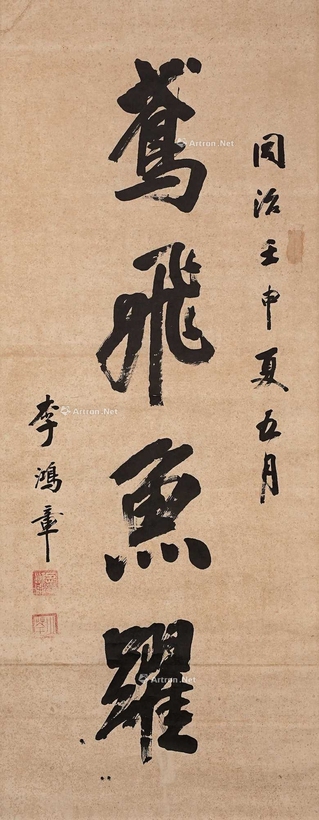 同治壬申夏五月
鸢飛魚躍
李鴻章
Artron.Net
Artron.Net
Artron.Net